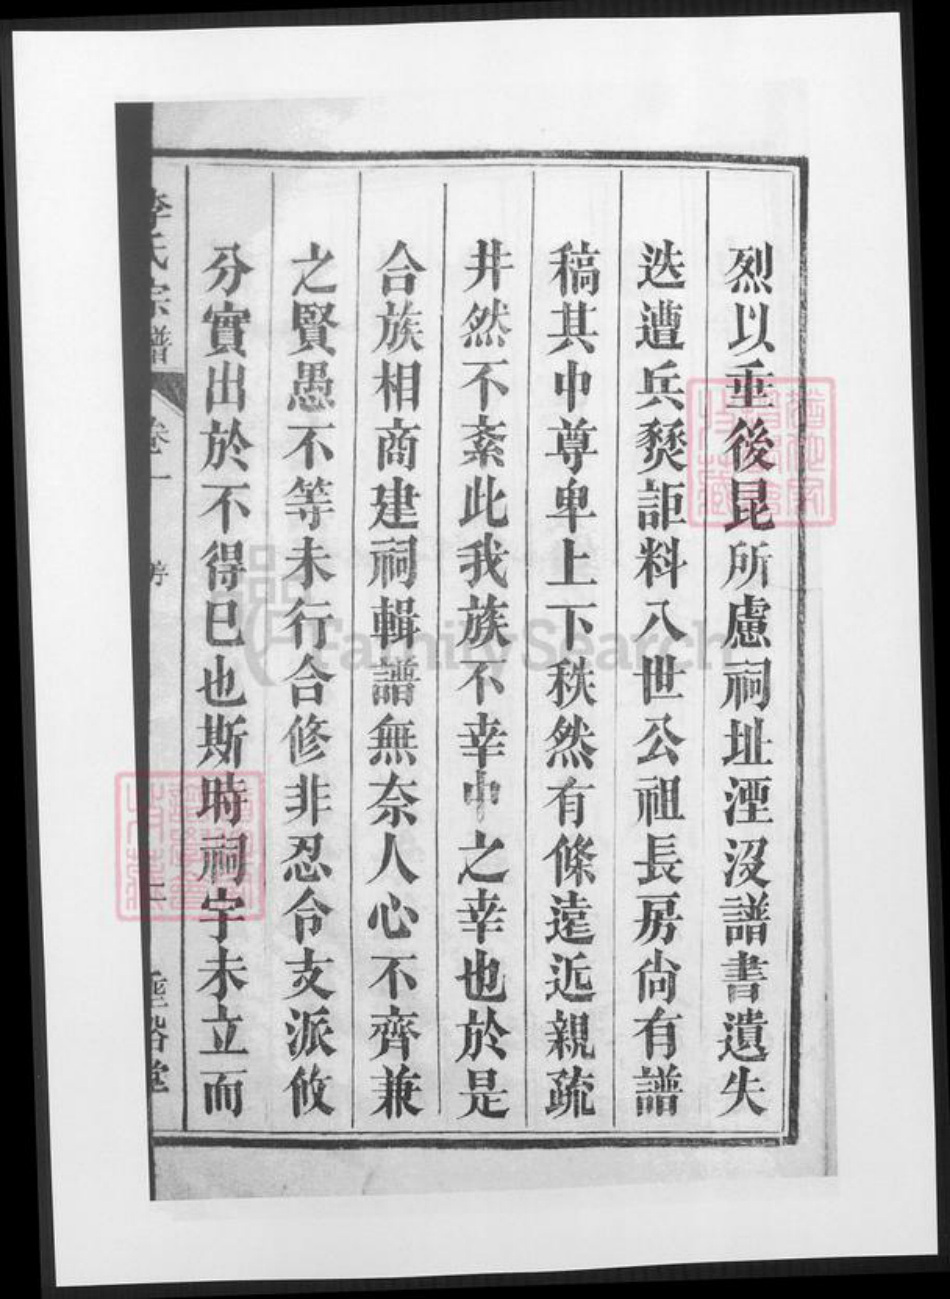 烈以垂後昆所慮祠址湮沒譜書遺失
迭遭兵燹詎料八世公祖長房尚有譜
稿其中尊卑上下秩然有條遠近親疏
井然不紊此我族不幸中之幸也於是
合族相商建祠輯譜無奈人心不齊兼
之賢愚不等未行合修非忍令支派攸
分實出於不得已也斯時祠宇未立而
李氏宗譜 卷一 序
FamilySearch